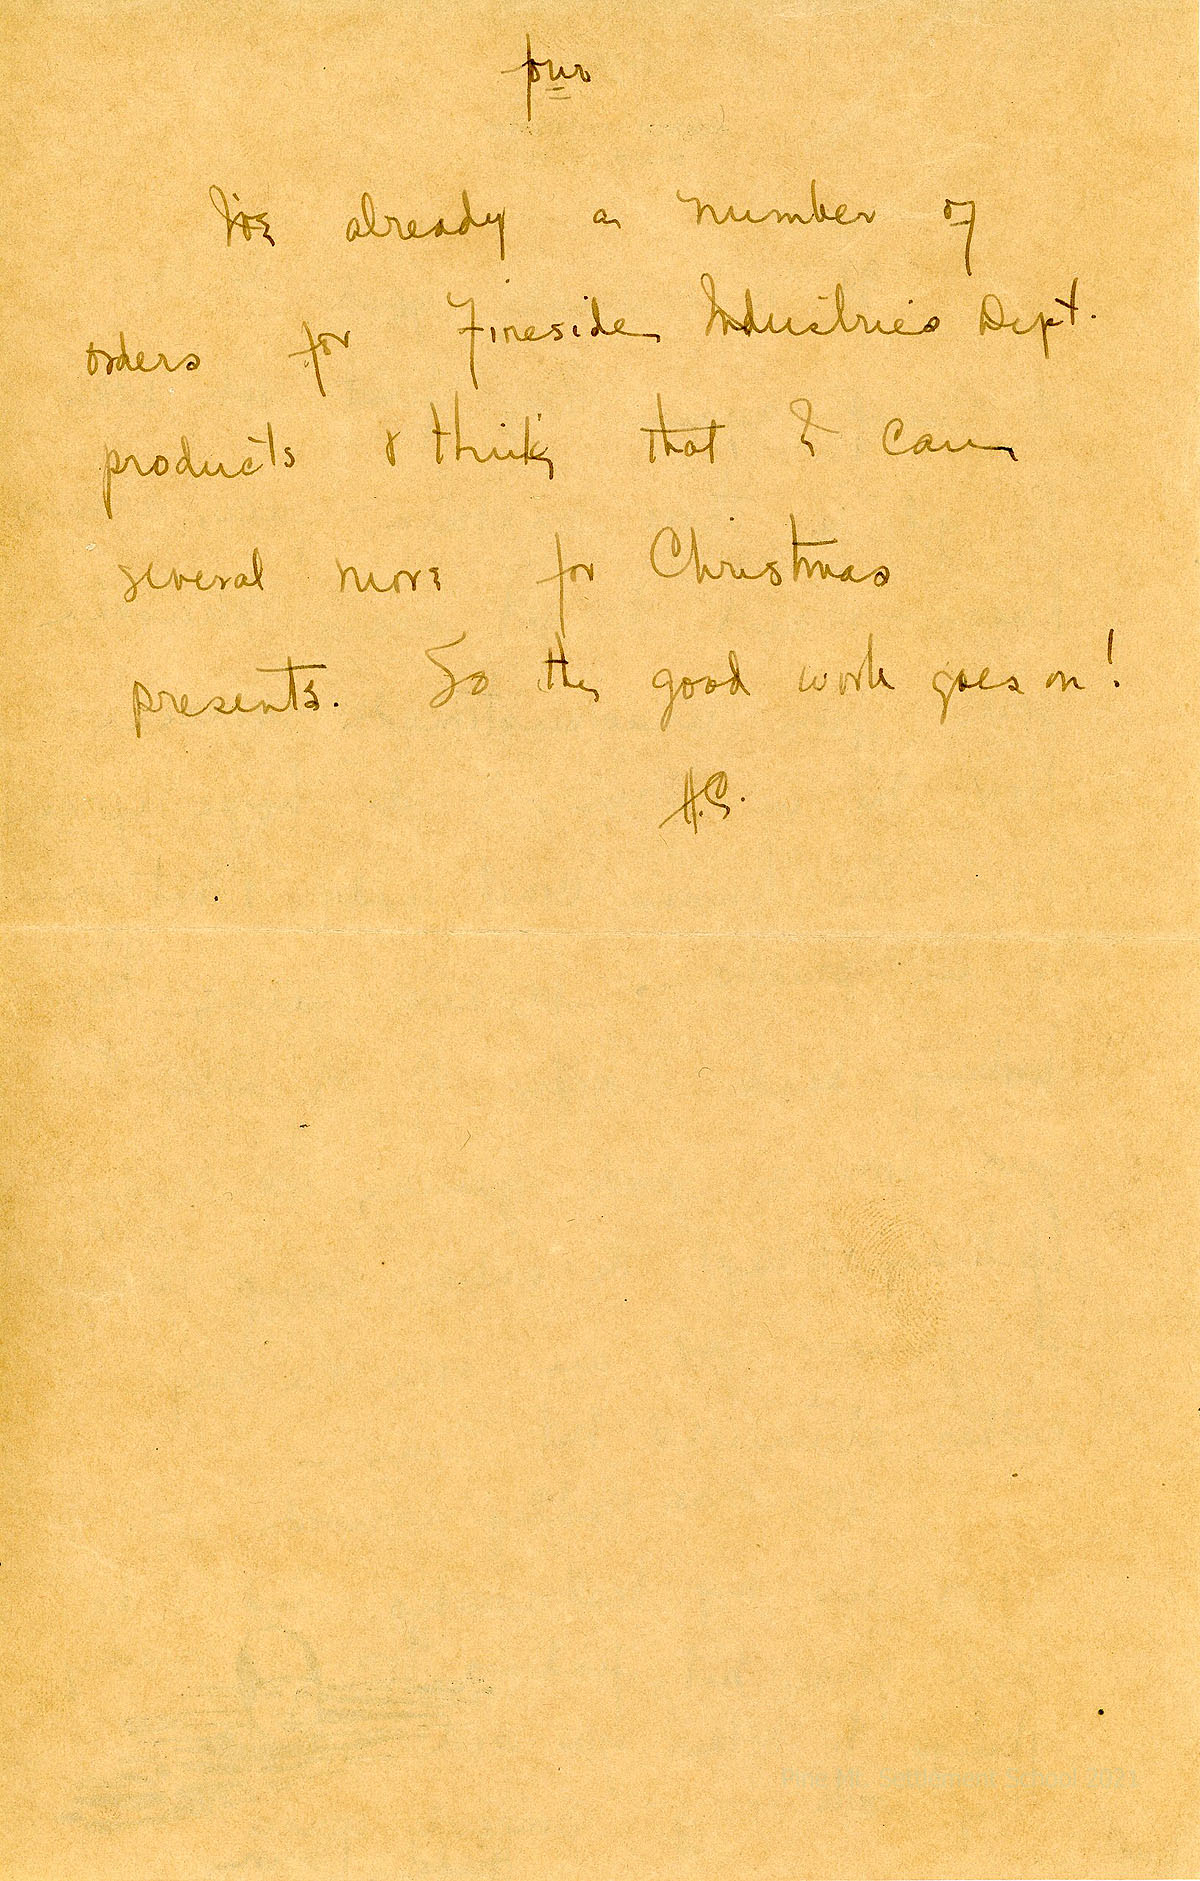 four
I've already a number of
orders for Fireside Industries Dept.
products & think that I can
several more for Christmas
presents. So the good work goes on!
H.C.